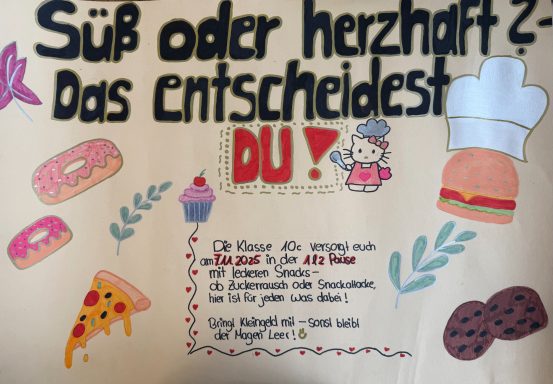 Süß oder herzhaft?-
Das entscheidest
DU!
Die Klasse 10c versorgt euch
am 7.11.2025 in der 1&2 Pause
mit leckeren Snacks-
ob Zuckerrausch oder Snackattacke,
hier ist für jeden was dabei!
Bringt Kleingeld mit - sonst bleibt
der Magen Leer!